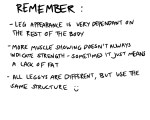 REMEMBER :
- LEG APPEARANCE IS VERY DEPENDANT ON
THE REST OF THE BODY
- MORE MUSCLE SHOWING DOESN'T ALWAYS
INDICATE STRENGTH - SOMETIMES IT JUST MEANS
A LACK OF FAT
- ALL LEGGYS ARE DIFFERENT, BUT USE THE
SAME STRUCTURE